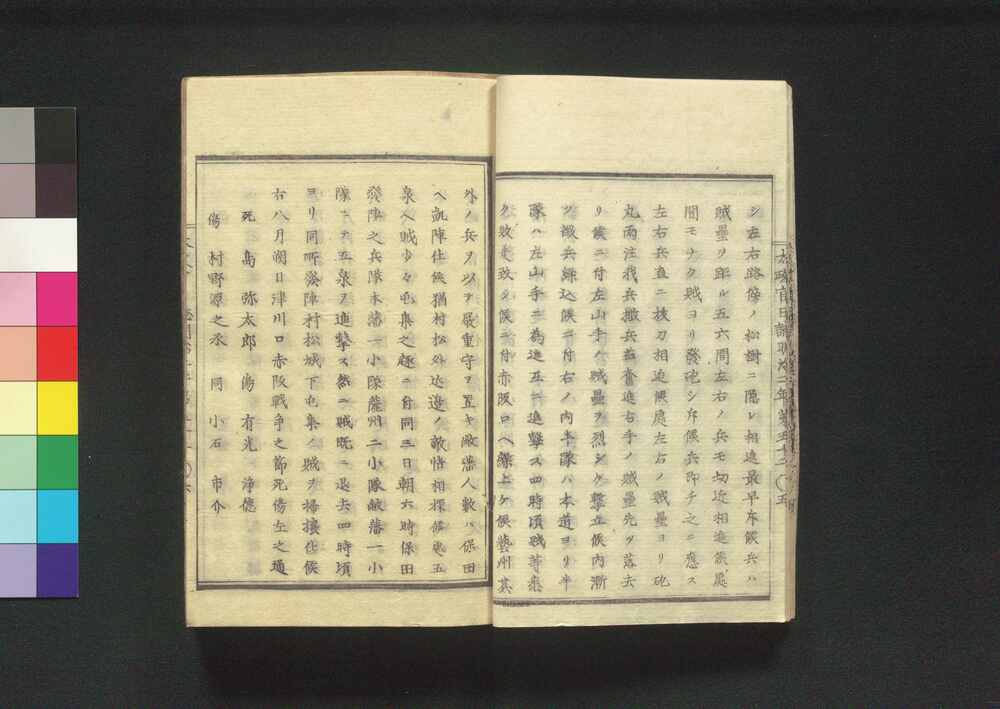 シ左右路傍ノ松樹ニ隱レ相進最早斥候兵ハ
賊壘ヲ距ル五六間左右ノ兵モ切近相進候處
間モナク賊ヨリ發砲シ斥候兵即チ之ニ應ス
左右兵直ニ抜刀相迫候處左右ノ賊壘ヨリ砲
丸雨注我兵撒兵益奮進右手ノ賊壘先ツ落去
リ候ニ付左山手ノ賊壘ヲ烈シク撃立候内漸
ク撒兵繰込候ニ付右ノ内半隊ハ本道ヨリ半
隊ハ左山手ニ為進互ニ進撃ス四時頃賊等悉
ク敗走致シ候ニ付赤阪口ヘ繰上ケ候藝州其
太政官日誌明治二年第五十二 五
外ノ兵ヲ以テ嚴重守ヲ置キ敝藩人數ハ保田
ヘ凱陣仕候猶村松外近邊ノ敵情相探候處五
泉ヘ賊少々屯集之趣ニ付同三日朝六時保田
發陣之兵隊本藩一小隊薩州二小隊敝藩一小
隊ニテ五泉ヲ進撃ス然ニ賊既ニ退去四時頃
ヨリ同所發陣村松城下屯集ノ賊ヲ掃攘仕候
右八月朔日津川口赤阪戰爭之節死傷左之通
死 島 弥太郎 傷 有光 淨德
傷 村野源之丞 同 小石 市介